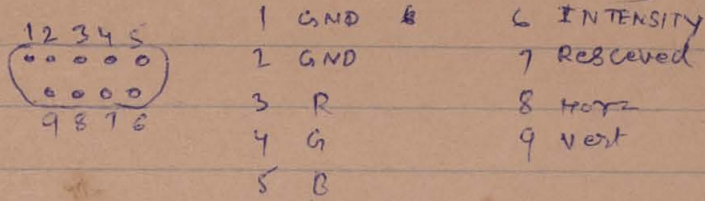 1 2 3 4 5
9 8 7 6
1 GND
2 GND
3 R
4 G
5 B
6 INTENSITY
7 Resceved
8 Horz
9 Vert